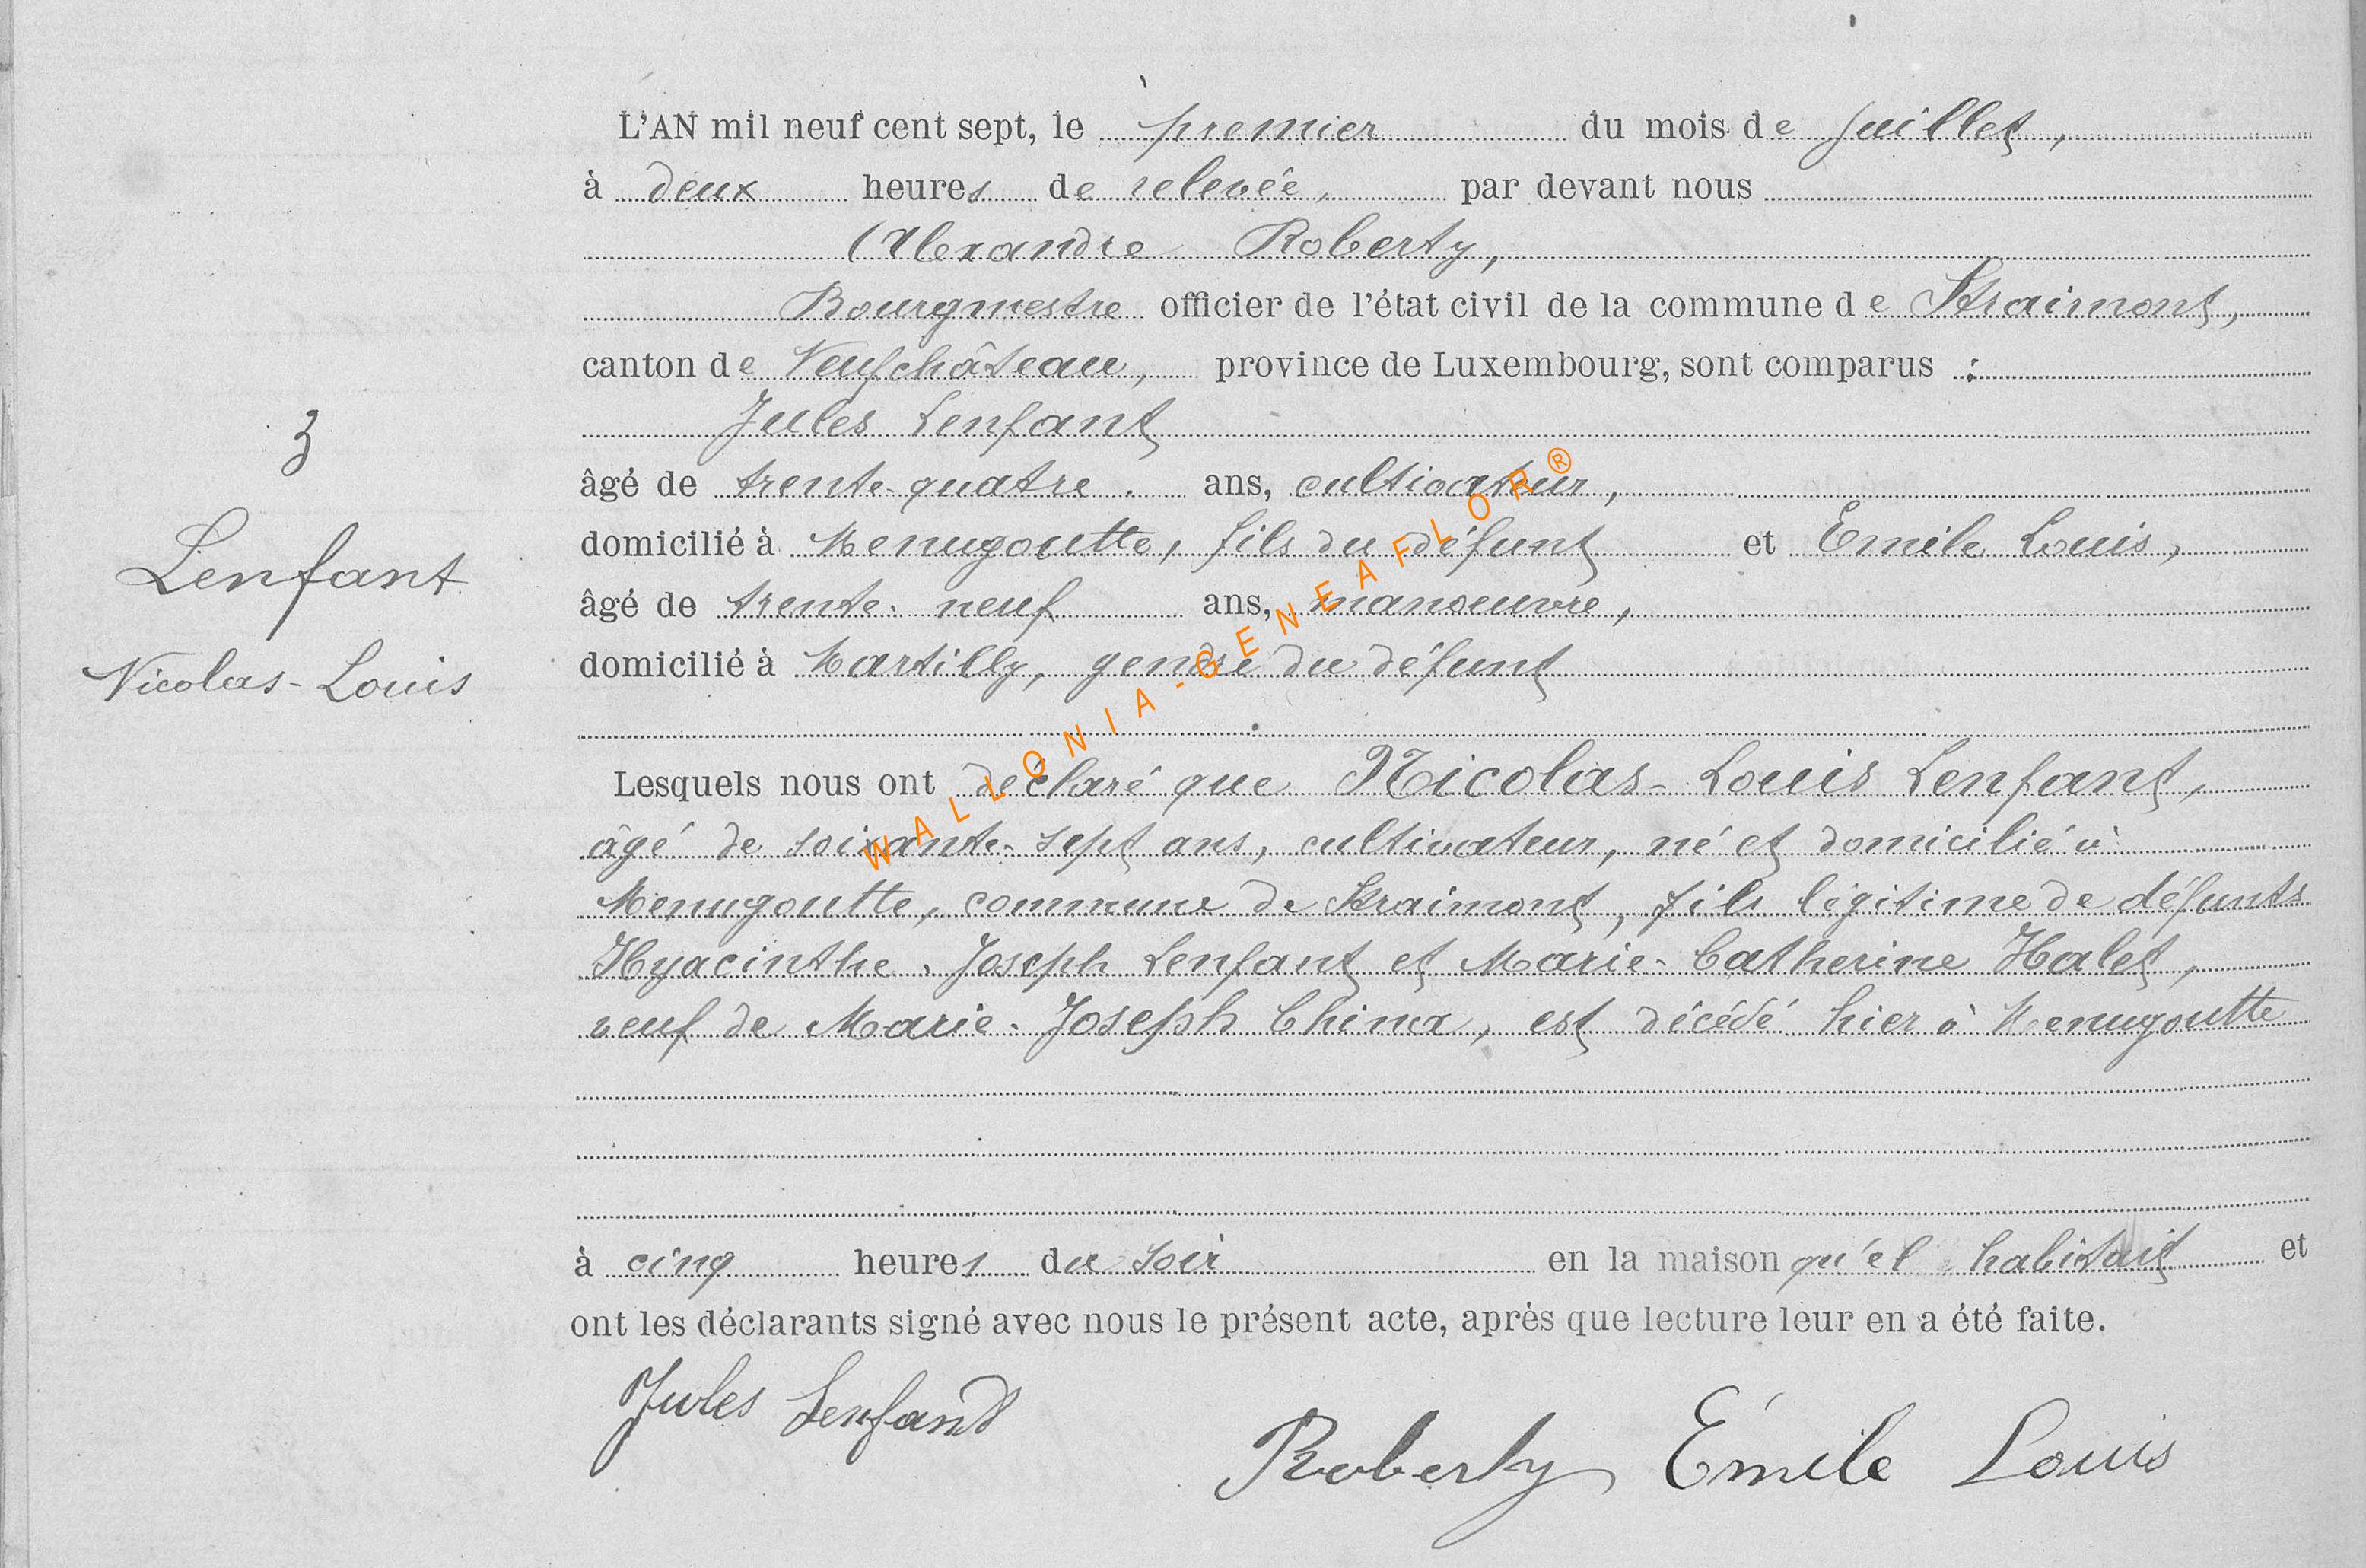 L'AN mil neuf cent sept, le premier du mois de Juillet,
à deux heures de relevée, par devant nous
Alexandre Roberty,
Bourgmestre officier de l'état civil de la commune de Straimont,
canton de Neufchâteau, province de Luxembourg, sont comparus :
Jules Lenfant
3
âgé de trente-quatre ans, cultivateur,
domicilié à Menugoutte, fils du défunt et Emile Louis,
Lenfant
âgé de trente-neuf ans, manoeuvre,
domicilié à Martilly, gendre du défunt
Nicolas-Louis
WALLONIA-GENEAFLOR®
Lesquels nous ont déclaré que Nicolas-Louis Lenfant,
âgé de soixante-sept ans, cultivateur, né et domicilié à
Menugoutte, commune de Straimont, fils légitime de défunts
Hyacinthe-Joseph Lenfant et Marie-Catherine Halet,
veuf de Marie-Joseph Chinox, est décédé hier à Menugoutte
à cinq heures du soir en la maison qu'il habitait et
ont les déclarants signé avec nous le présent acte, après que lecture leur en a été faite.
Jules Lenfant
Roberty Émile Louis